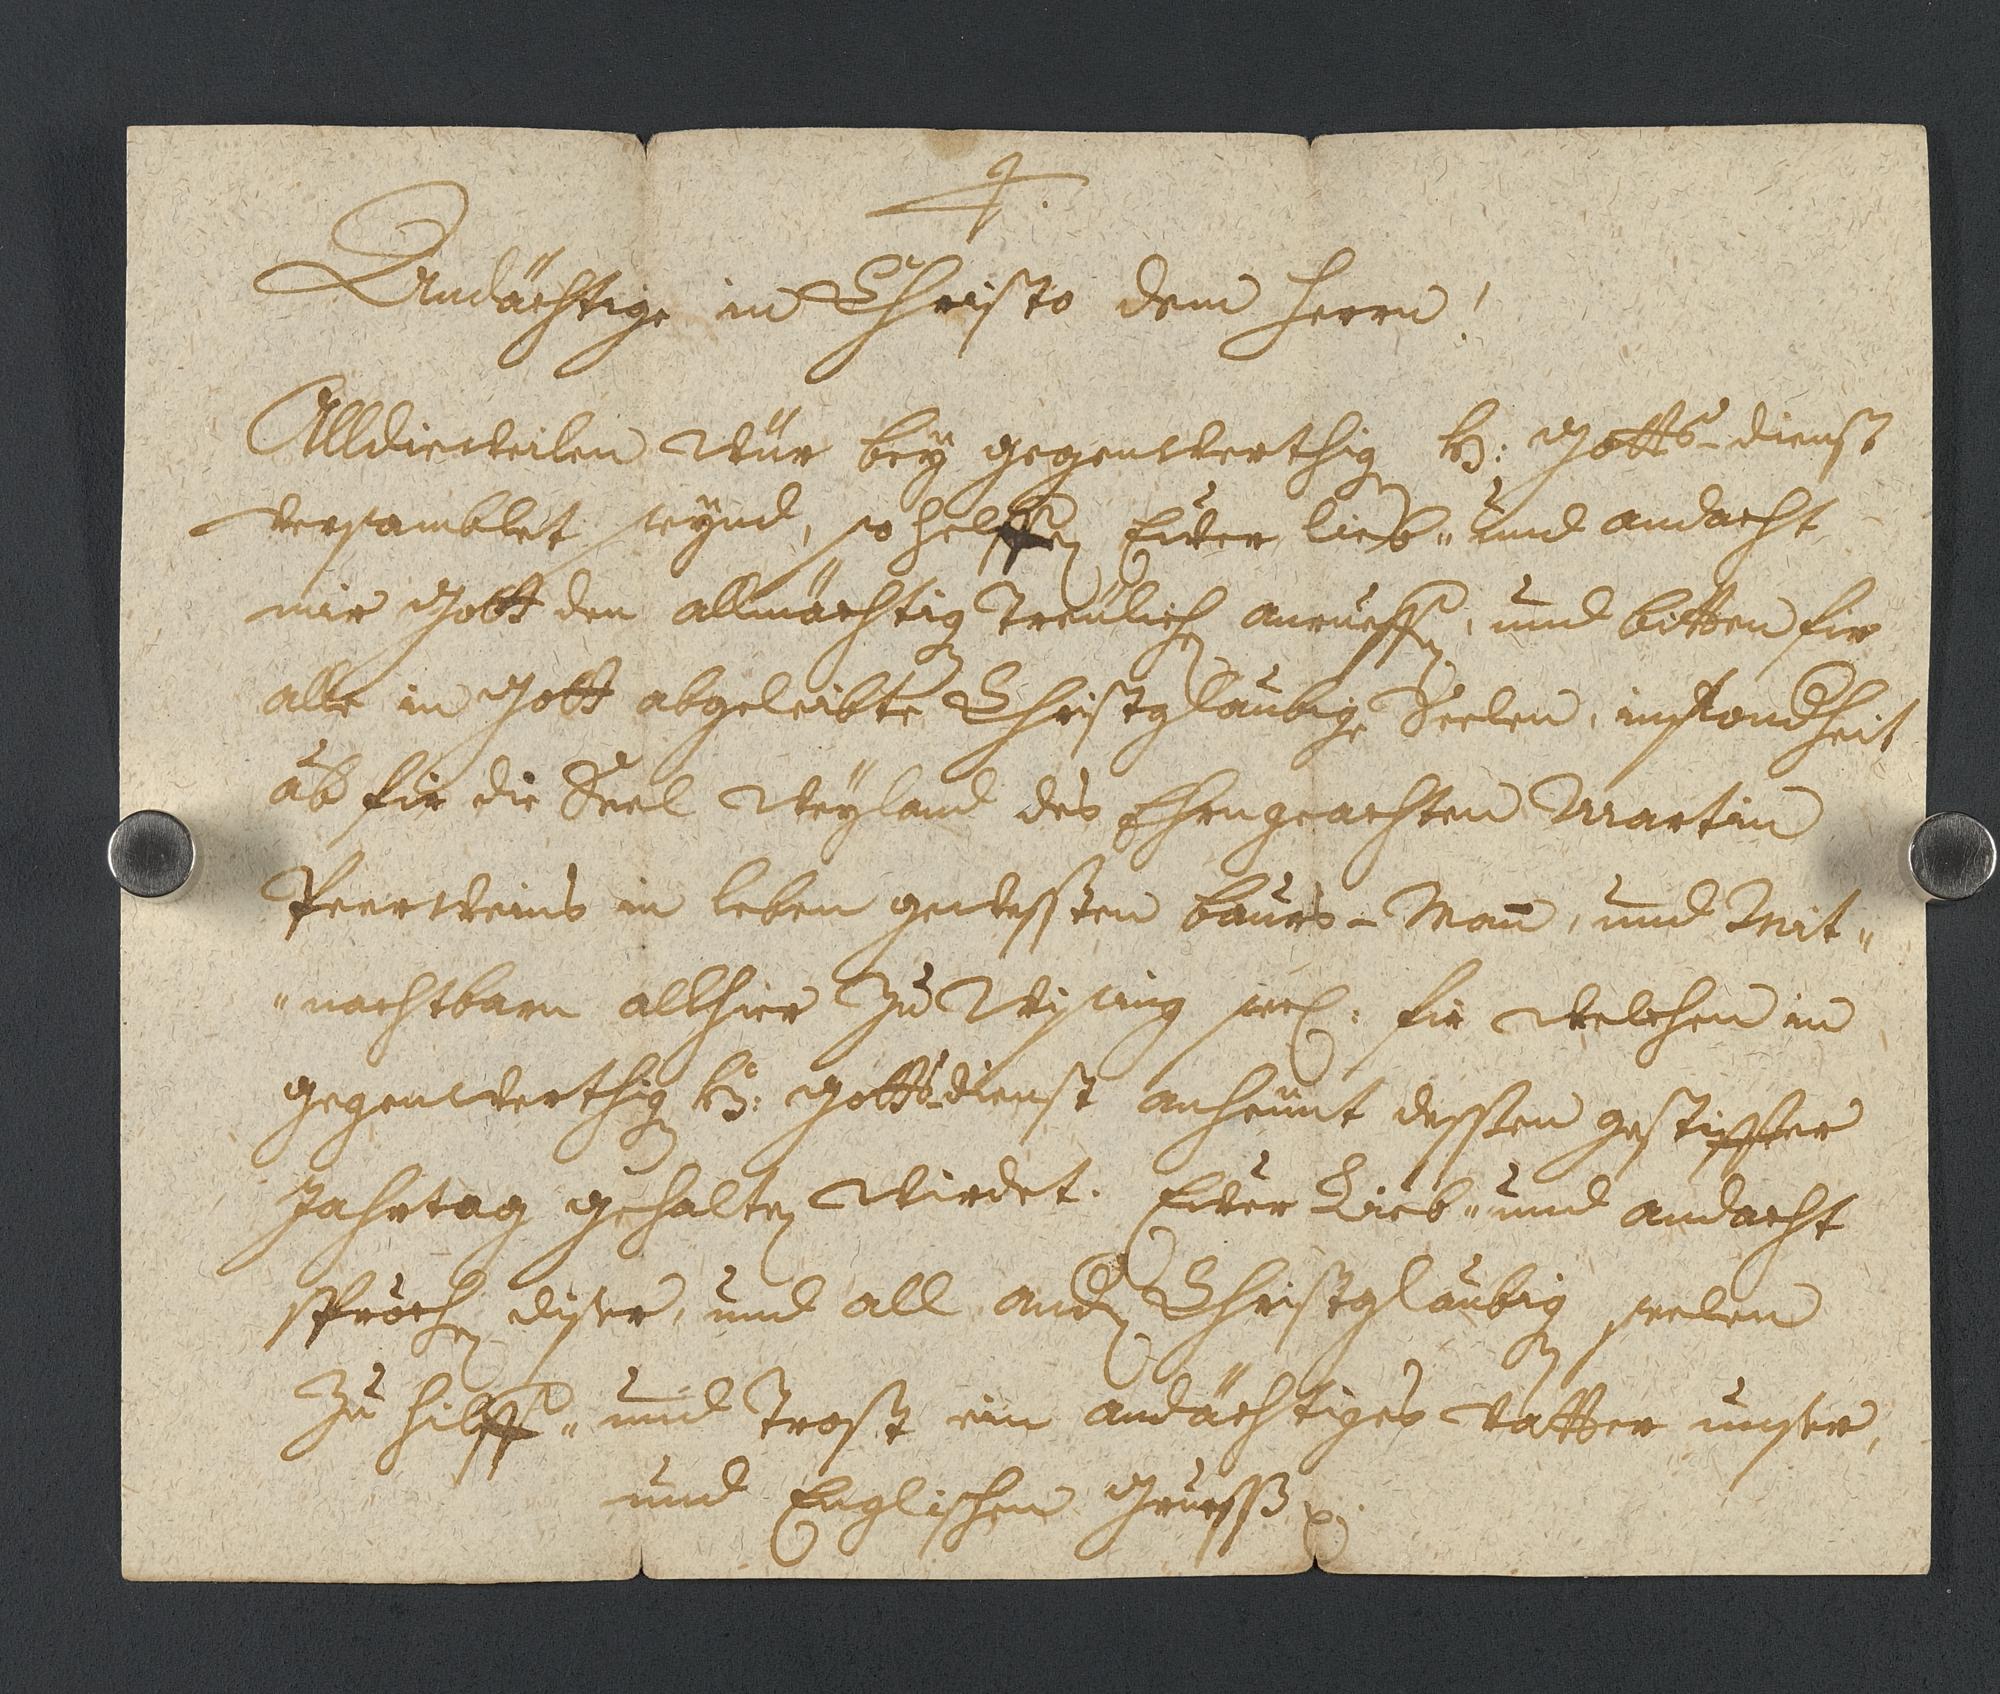 Andächtige in Christo dem Herrn!
Alldieweilen wür beÿ gegenwerthig h: Gotts-dienst
versamblet seynd, so helffen Euer lieb- und andacht
mir Gott den allmächtig treülich anrueffen, und bitten fir
alle in Gott abgeleibte Christglaubige Seelen, insondheit
ab fir die Seel weÿland des Ehrngeachten Martin
Peerweins in leben gewessten baurs-Man, und Mit-
-nachtbarn allhier zu Wising seel: fir welchen in
gegenwerthig h: Gottsdienst anheunt dessen gestiffter
Jahrtag gehalten wirdet. Euer Lieb- und andacht
sprechen diser, und all andern Christglaubig seelen
Zu hilff- und trost ein andächtiges vatter unser,
und Englischen Gruess